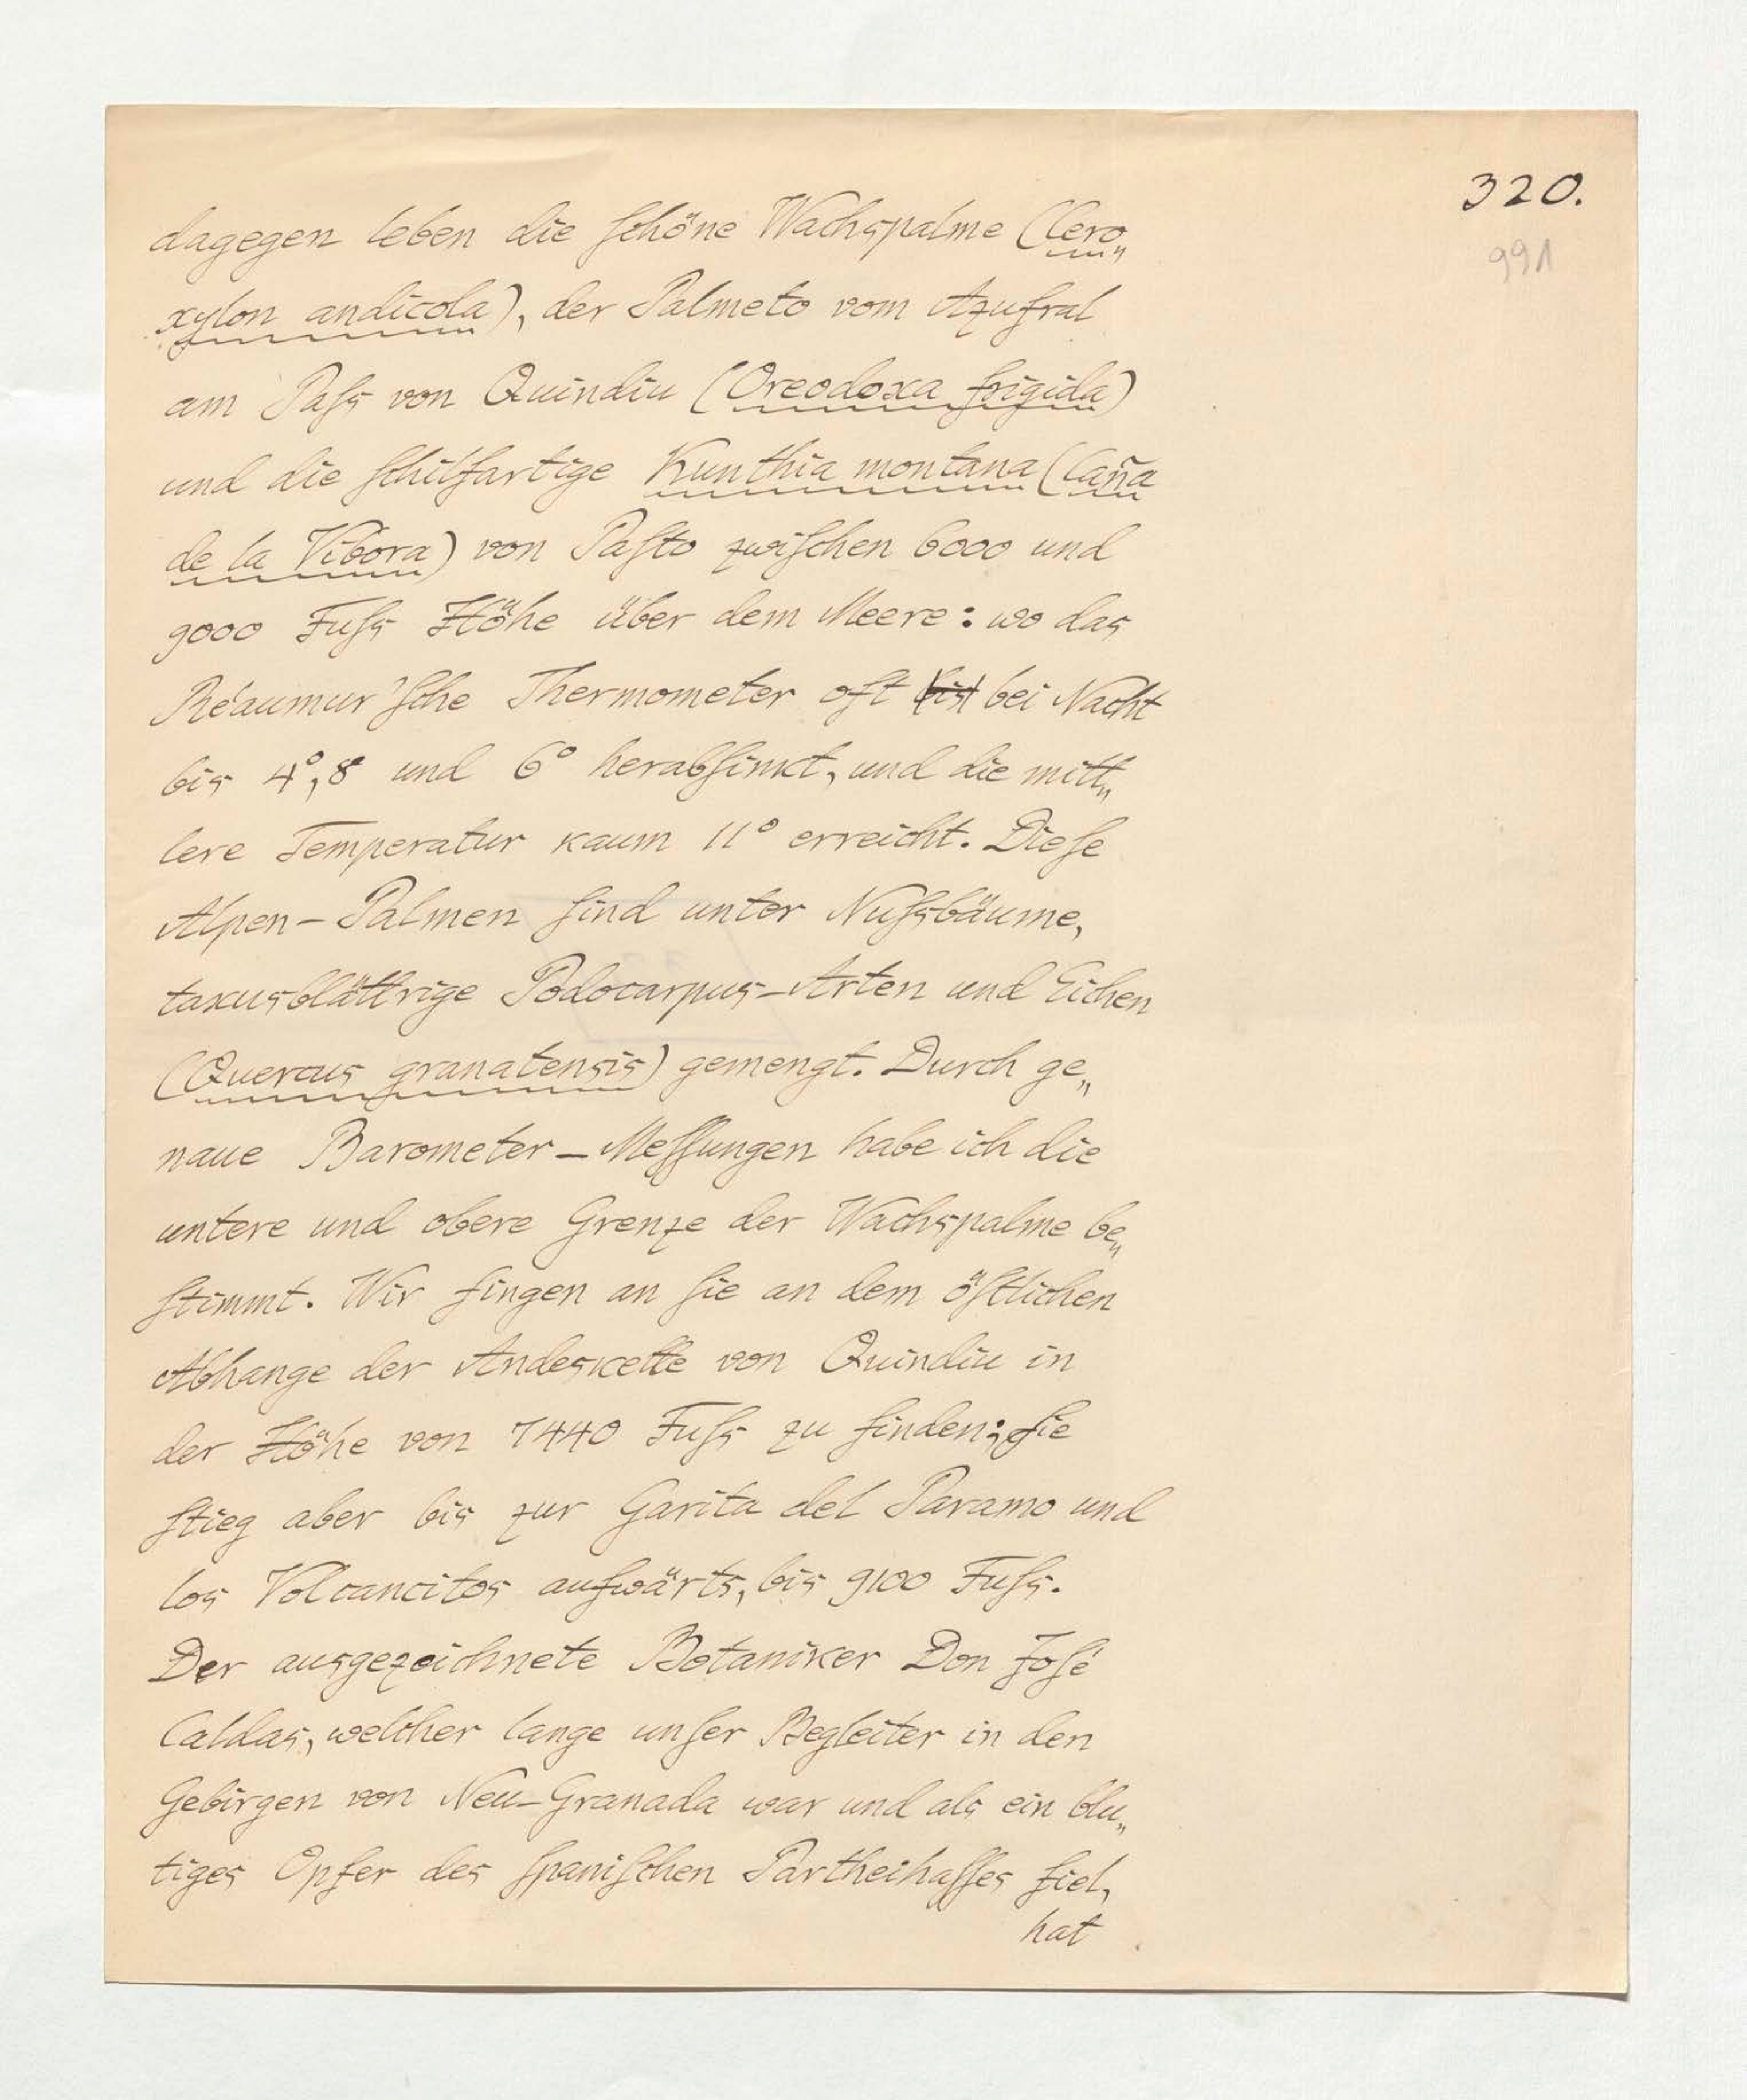 320.
991
dagegen leben die ſchöne Wachspalme (Cero„
xylon andicola), der Palmeto vom Azufral
am Paſs von Quindiu (Oreodoxa frigida)
und die ſchilfartige Kunthia montana (Caña
de la Vibora) von Paſto zwiſchen 6000 und
9000 Fuſs Höhe über dem Meere: wo das
Réaumur'ſche Thermometer oft bis bei Nacht
bis 4°,8 und 6° herabſinkt, und die mitt„
lere Temperatur kaum 11° erreicht. Dieſe
Alpen-Palmen ſind unter Nuſsbäume,
taxusblättrige Podocarpus-Arten und Eichen
(Quercus granatensis) gemengt. Durch ge„
naue Barometer-Meſſungen habe ich die
untere und obere Grenze der Wachspalme be„
ſtimmt. Wir fingen an ſie an dem öſtlichen
Abhange der Andeskette von Quindiu in
der Höhe von 7440 Fuſs zu finden; ſie
ſtieg aber bis zur Garita del Paramo und
los Volcancitos aufwärts, bis 9100 Fuſs.
Der ausgezeichnete Botaniker Don Joſé
Caldas, welcher lange unſer Begleiter in den
Gebirgen von Neu-Granada war und als ein blu„
tiges Opfer des ſpaniſchen Partheihaſſes fiel,
hat